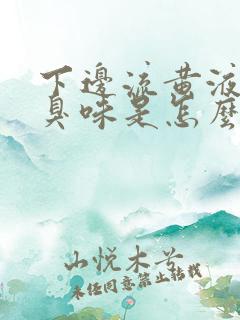 下邊流黃液
臭味是怎麼
山悅木兮
未经同意禁止转载